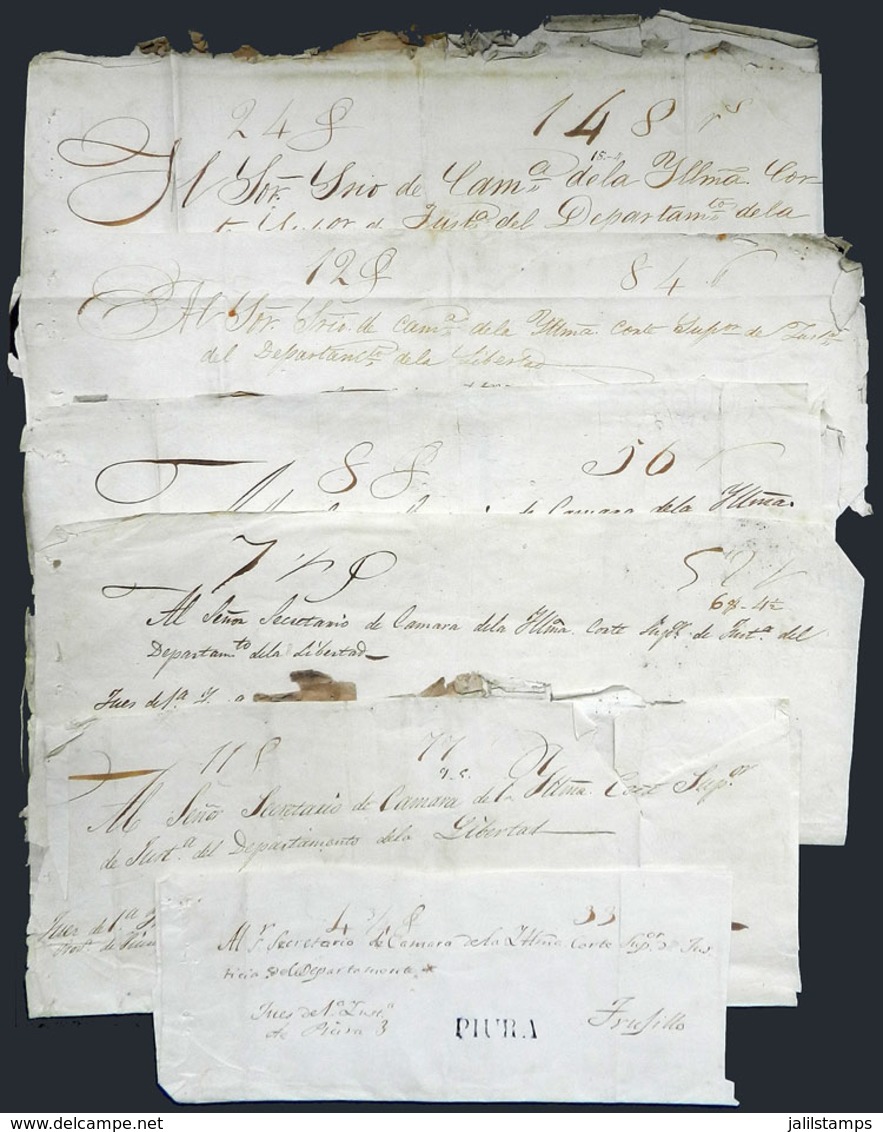 24 8 148 rs
15-"
Al Sor. Srio de Cama. dela Yllma. Cor-
de Justa. del Departamto. dela
12 8 84
Al Sor. Srio. de Cama. dela Yllma. Corte Supor. de Justa.
del Departamto. dela Libertad
8 8 56
de Camara dela Yllma.
7 8 52
6 4½
Al Señor Secretario de Camara dela Yllma. Corte Supor. de Justa. del
Departamto. dela Libertad
Jues de 1a. Y.
11 8 77
Al Señor Secretario de Camara de la Yllma. Corte Supor.
de Justa. del Departamento dela Libertad
Jues de 1.a
4 8 33
Al Sr. Secretario de Camara de la Yllma. Corte Supor. de Jus
ticia del Departamento
Jues de 1a. Insta.
de Piura PIURA Trujillo
jalilstamps